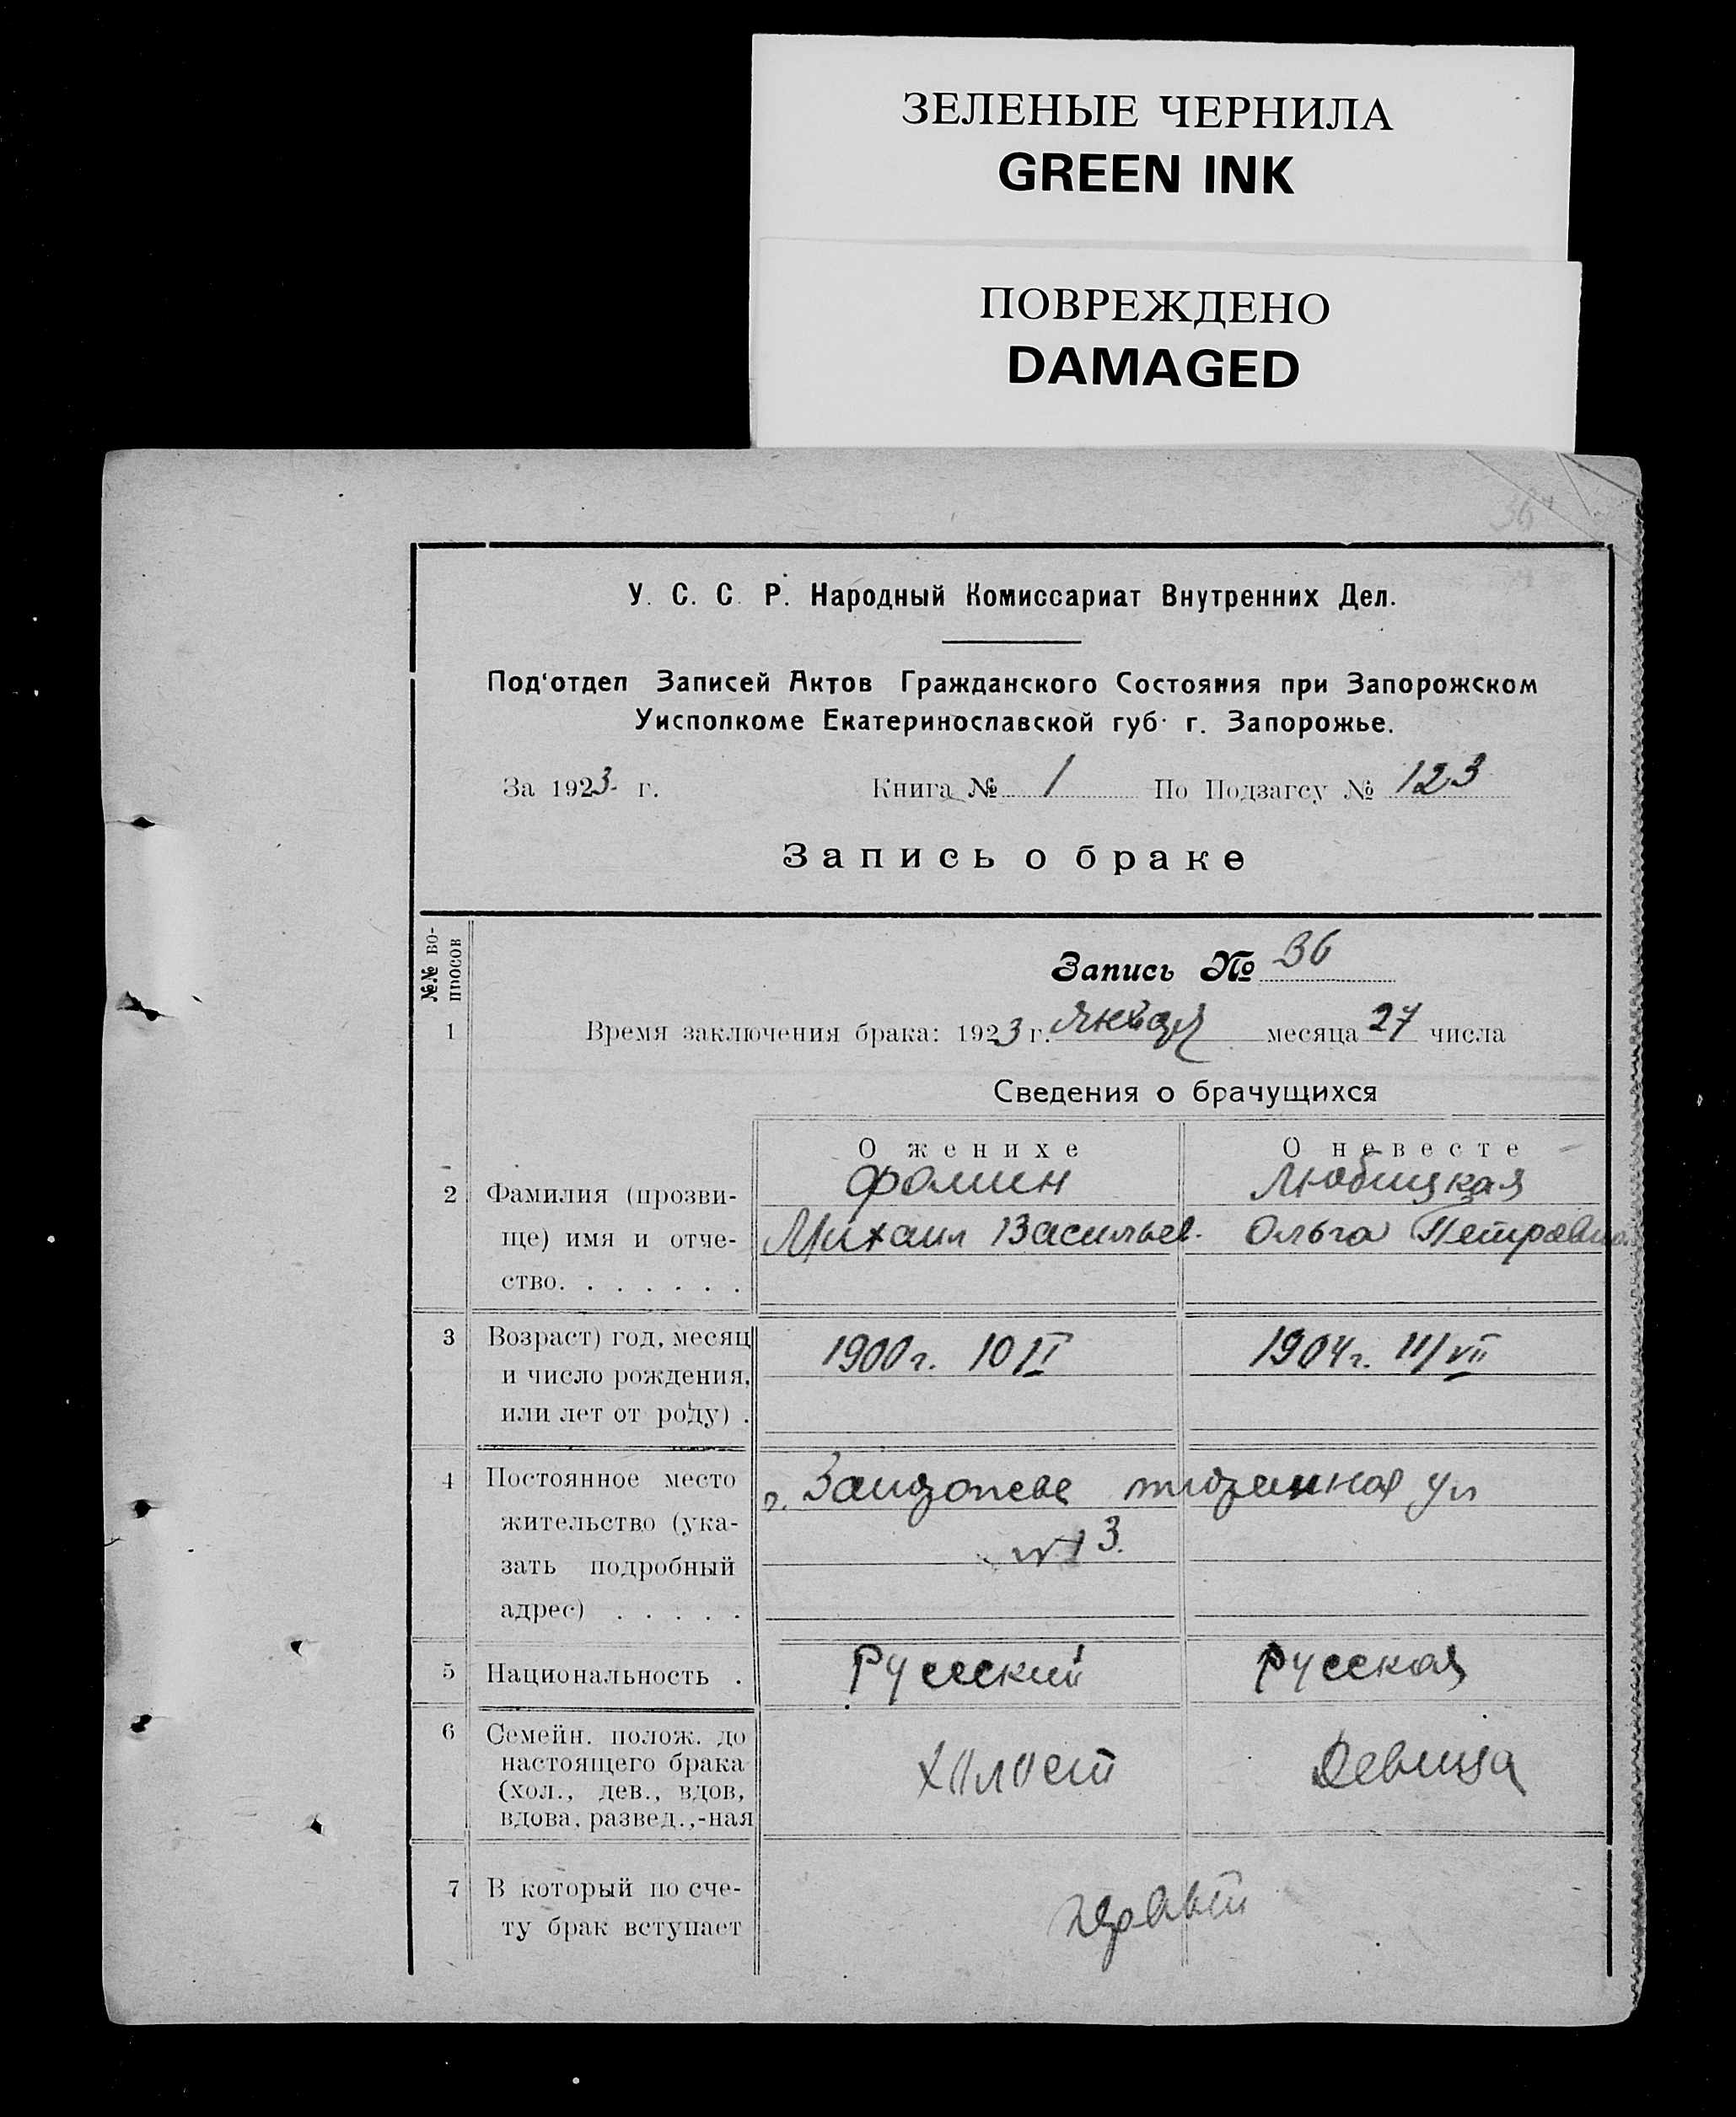 ЗЕЛЕНЫЕ ЧЕРНИЛА
GREEN INK
ПОВРЕЖДЕНО
DAMAGED
36
У. С. С. Р. Народный Комиссариат Внутренних Дел.
Под‘отдел Записей Актов Гражданского Состояния при Запорожском
Уисполкоме Екатеринославской губ. г. Запорожье.
За 1923 г. Книга № 1 По Подзагсу № 123
Запись о браке
№№ во-
просов
Запись № 36
1 Время заключения брака: 1923 г. Января месяца 27 числа
Сведения о брачущихся
О женихе О невесте
2 Фамилия (прозви- Фомин Любицкая
ще) имя и отче- Михаил Васильев. Ольга Петровна
ство. . . . . . .
3 Возраст) год, месяц 1900 г. 10 II 1904 г. 11/VII
и число рождения,
или лет от роду) .
4 Постоянное место г. Запорожье тюремная ул
жительство (ука- № 3.
зать подробный
адрес) . . . . .
5 Национальность . Русский Русская
6 Семейн. полож. до
настоящего брака Холост Девица
(хол., дев., вдов,
вдова, развед.,-ная
7 В который по сче- первый
ту брак вступает